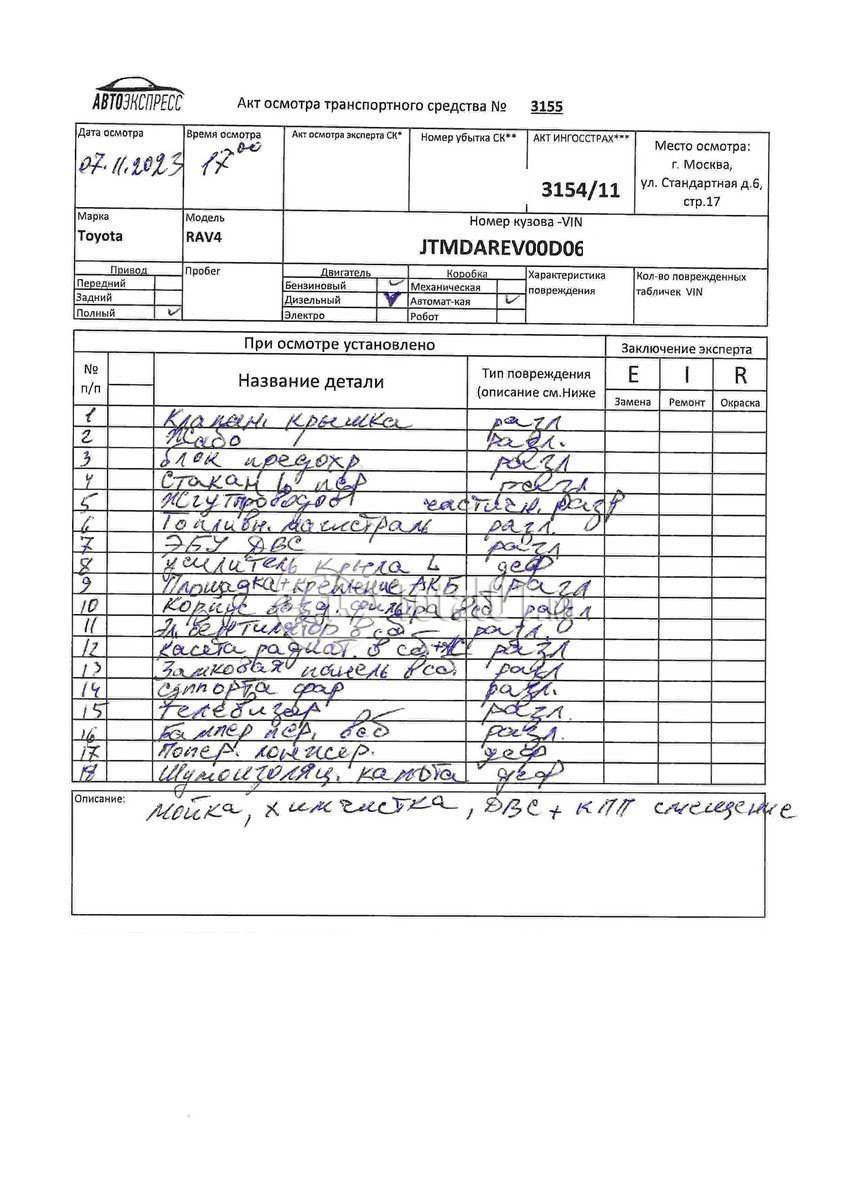 АВТОЭКСПРЕСС
Акт осмотра транспортного средства № 3155
Дата осмотра
07.11.2023
Время осмотра
17⁰⁰
Акт осмотра эксперта СК*
Номер убытка СК**
АКТ ИНГОССТРАХ***
3154/11
Место осмотра:
г. Москва,
ул. Стандартная д.6,
стр.17
Марка
Toyota
Модель
RAV4
Номер кузова -VIN
JTMDAREV00D06
Привод
Передний
Задний
Полный
Пробег
Двигатель
Бензиновый
Дизельный
Электро
Коробка
Механическая
Автомат-кая
Робот
Характеристика
повреждения
Кол-во поврежденных
табличек VIN
При осмотре установлено
Заключение эксперта
№
п/п
Название детали
Тип повреждения
(описание см.Ниже
E I R
Замена Ремонт Окраска
1 Клапан. крышка разл
2 Жабо разл.
3 блок предохр разл
4 Стакан L пер разл
5 Жгут проводов частичн. разр
6 Топливн. магистраль разл.
7 ЭБУ ДВС разл
8 усилитель крыла L деф
9 Площадка+крепление АКБ разл
10 Корпус возд. фильтра всб разл
11 Эл. вентилятор в сб разл.
12 касета радиат. в сб разл
13 Замковая панель в сб. разл
14 суппорта фар разл.
15 телевизар разл.
16 Бампер пер. всб разл.
17 Попер. лонжер. деф
18 Шумоизоляц. капота деф
Описание:
Мойка, химчистка, ДВС + КПП смещение